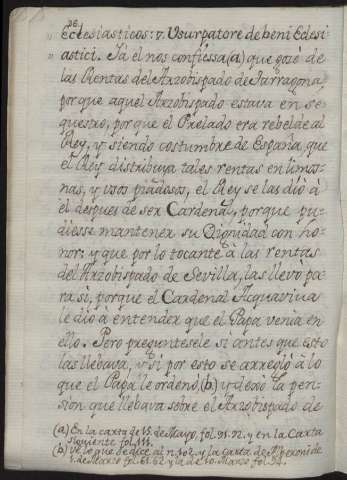 36.
„ Eclesiasticos: 7. Usurpatore de beni Eclesi
„ astici. Ià el nos confiessa (a) que gozó de
las Rentas del Arzobispado de Tarragona,
porque aquel Arzobispado estava en se
questro, porque el Prelado era rebelde al
Rey, y siendo costumbre de España, que
el Rey distribuya tales rentas en limos-
nas, y usos piadosos, el Rey se las dió à
èl despues de ser Cardenal, porque pu-
diesse mantener su Dignidad con ho-
nor: y que por lo tocante à las rentas
del Arzobispado de Sevilla, las llevó pa-
ra sì, porque el Cardenal Acquaviva
le dió à entender que el Papa venia en
ello. Pero preguntesele si antes que esto
las llebava, y si por esto se arregló à lo
que el Papa le ordenó, (b) y dexó la pen-
sion que llebava sobre el Arzobispado de
(a) En la carta de 15. de Mayo, fol. 91. 92. y en la Carta
siguiente fol. 111.
(b) Ve lo que se dice al n. 102. y la carta de Alberoni de
1. de Marzo fol. 61. 62 y la de 10. Marzo fol. 94.